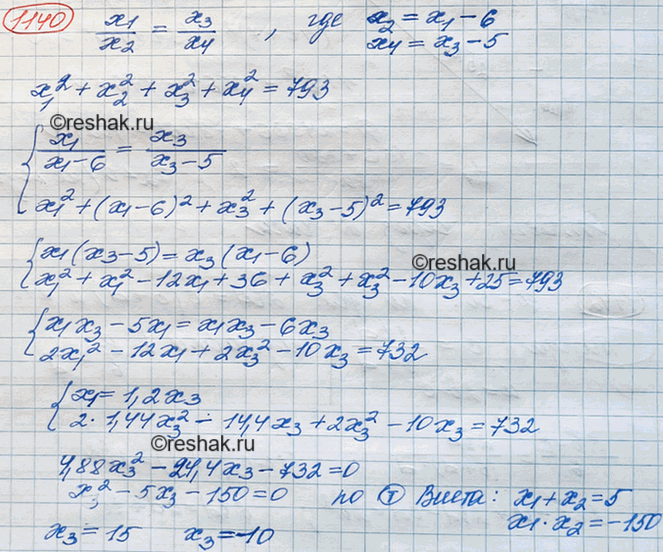 1140 x₁/x₂ = x₃/x₄ , где x₂ = x₁ - 6
x₄ = x₃ - 5
x₁² + x₂² + x₃² + x₄² = 793
©reshak.ru
{ x₁/(x₁-6) = x₃/(x₃-5)
x₁² + (x₁-6)² + x₃² + (x₃-5)² = 793
{ x₁(x₃-5) = x₃(x₁-6)
x₁² + x₁² - 12x₁ + 36 + x₃² + x₃² - 10x₃ + 25 = 793
©reshak.ru
{ x₁x₃ - 5x₁ = x₁x₃ - 6x₃
2x₁² - 12x₁ + 2x₃² - 10x₃ = 732
{ x₁ = 1,2x₃
2·1,44x₃² - 14,4x₃ + 2x₃² - 10x₃ = 732
©reshak.ru
4,88x₃² - 24,4x₃ - 732 = 0
x₃² - 5x₃ - 150 = 0 по Ⓣ Виета: x₁ + x₂ = 5
x₁·x₂ = -150
x₃ = 15 x₃ = -10